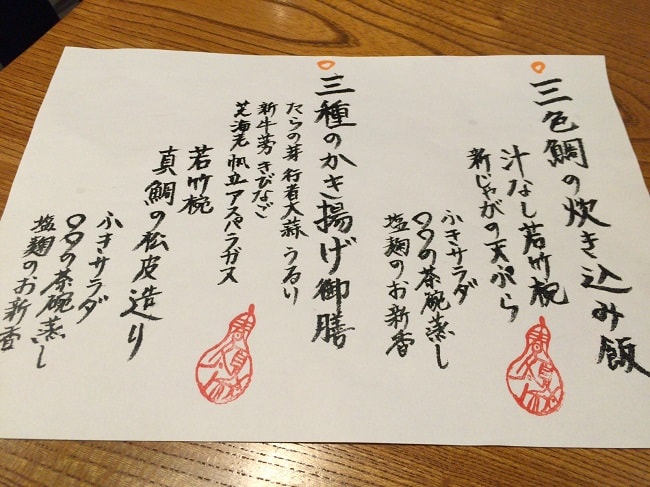 三色鯛の炊き込み飯
汁なし若竹椀
新じゃがの天ぷら
ふきサラダ
の茶碗蒸し
塩麹のお新香
三種のかき揚げ御膳
たらの芽 行者大蒜 うるい
新牛蒡 きびなご
芝海老 帆立 アスパラガス
若竹椀
真鯛の松皮造り
ふきサラダ
の茶碗蒸し
塩麹のお新香